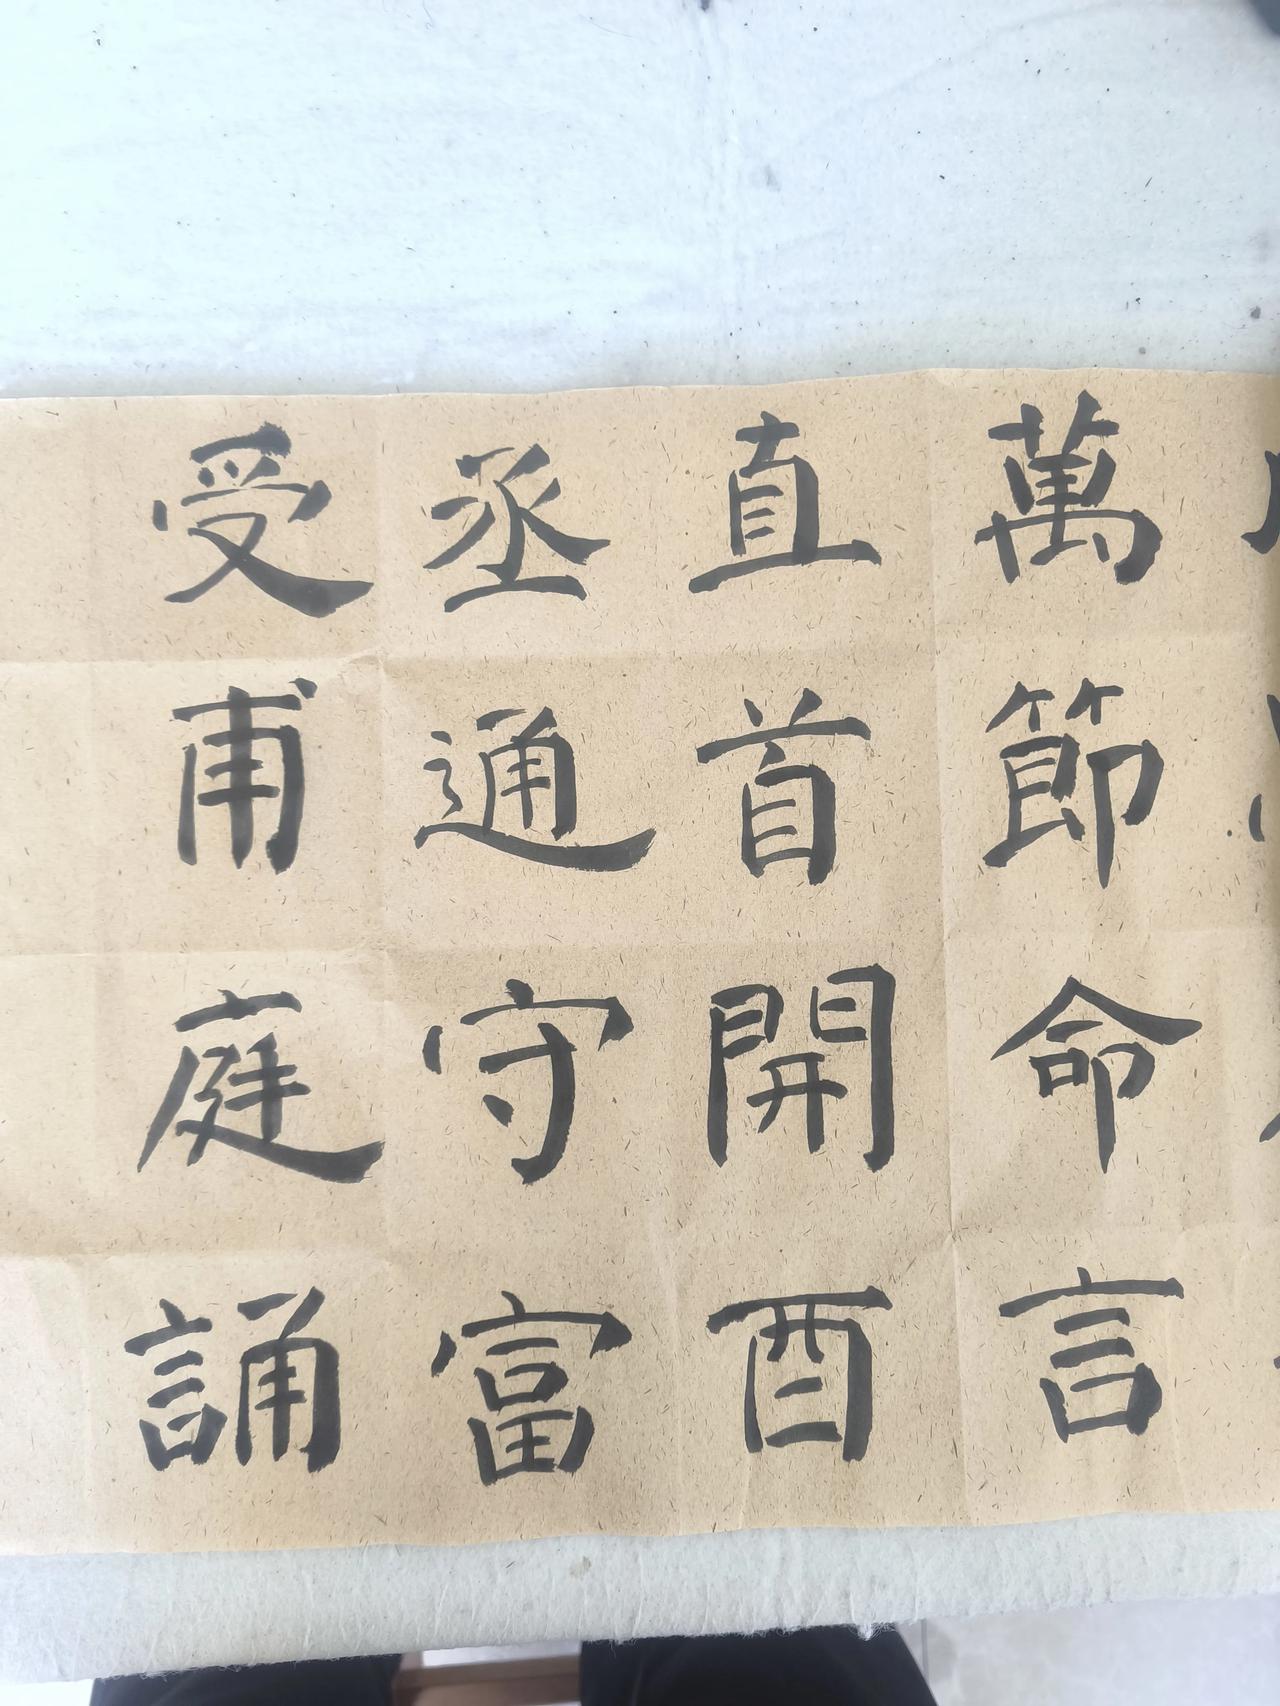 萬節命言
直首開酉
丞通守富
受甫庭誦